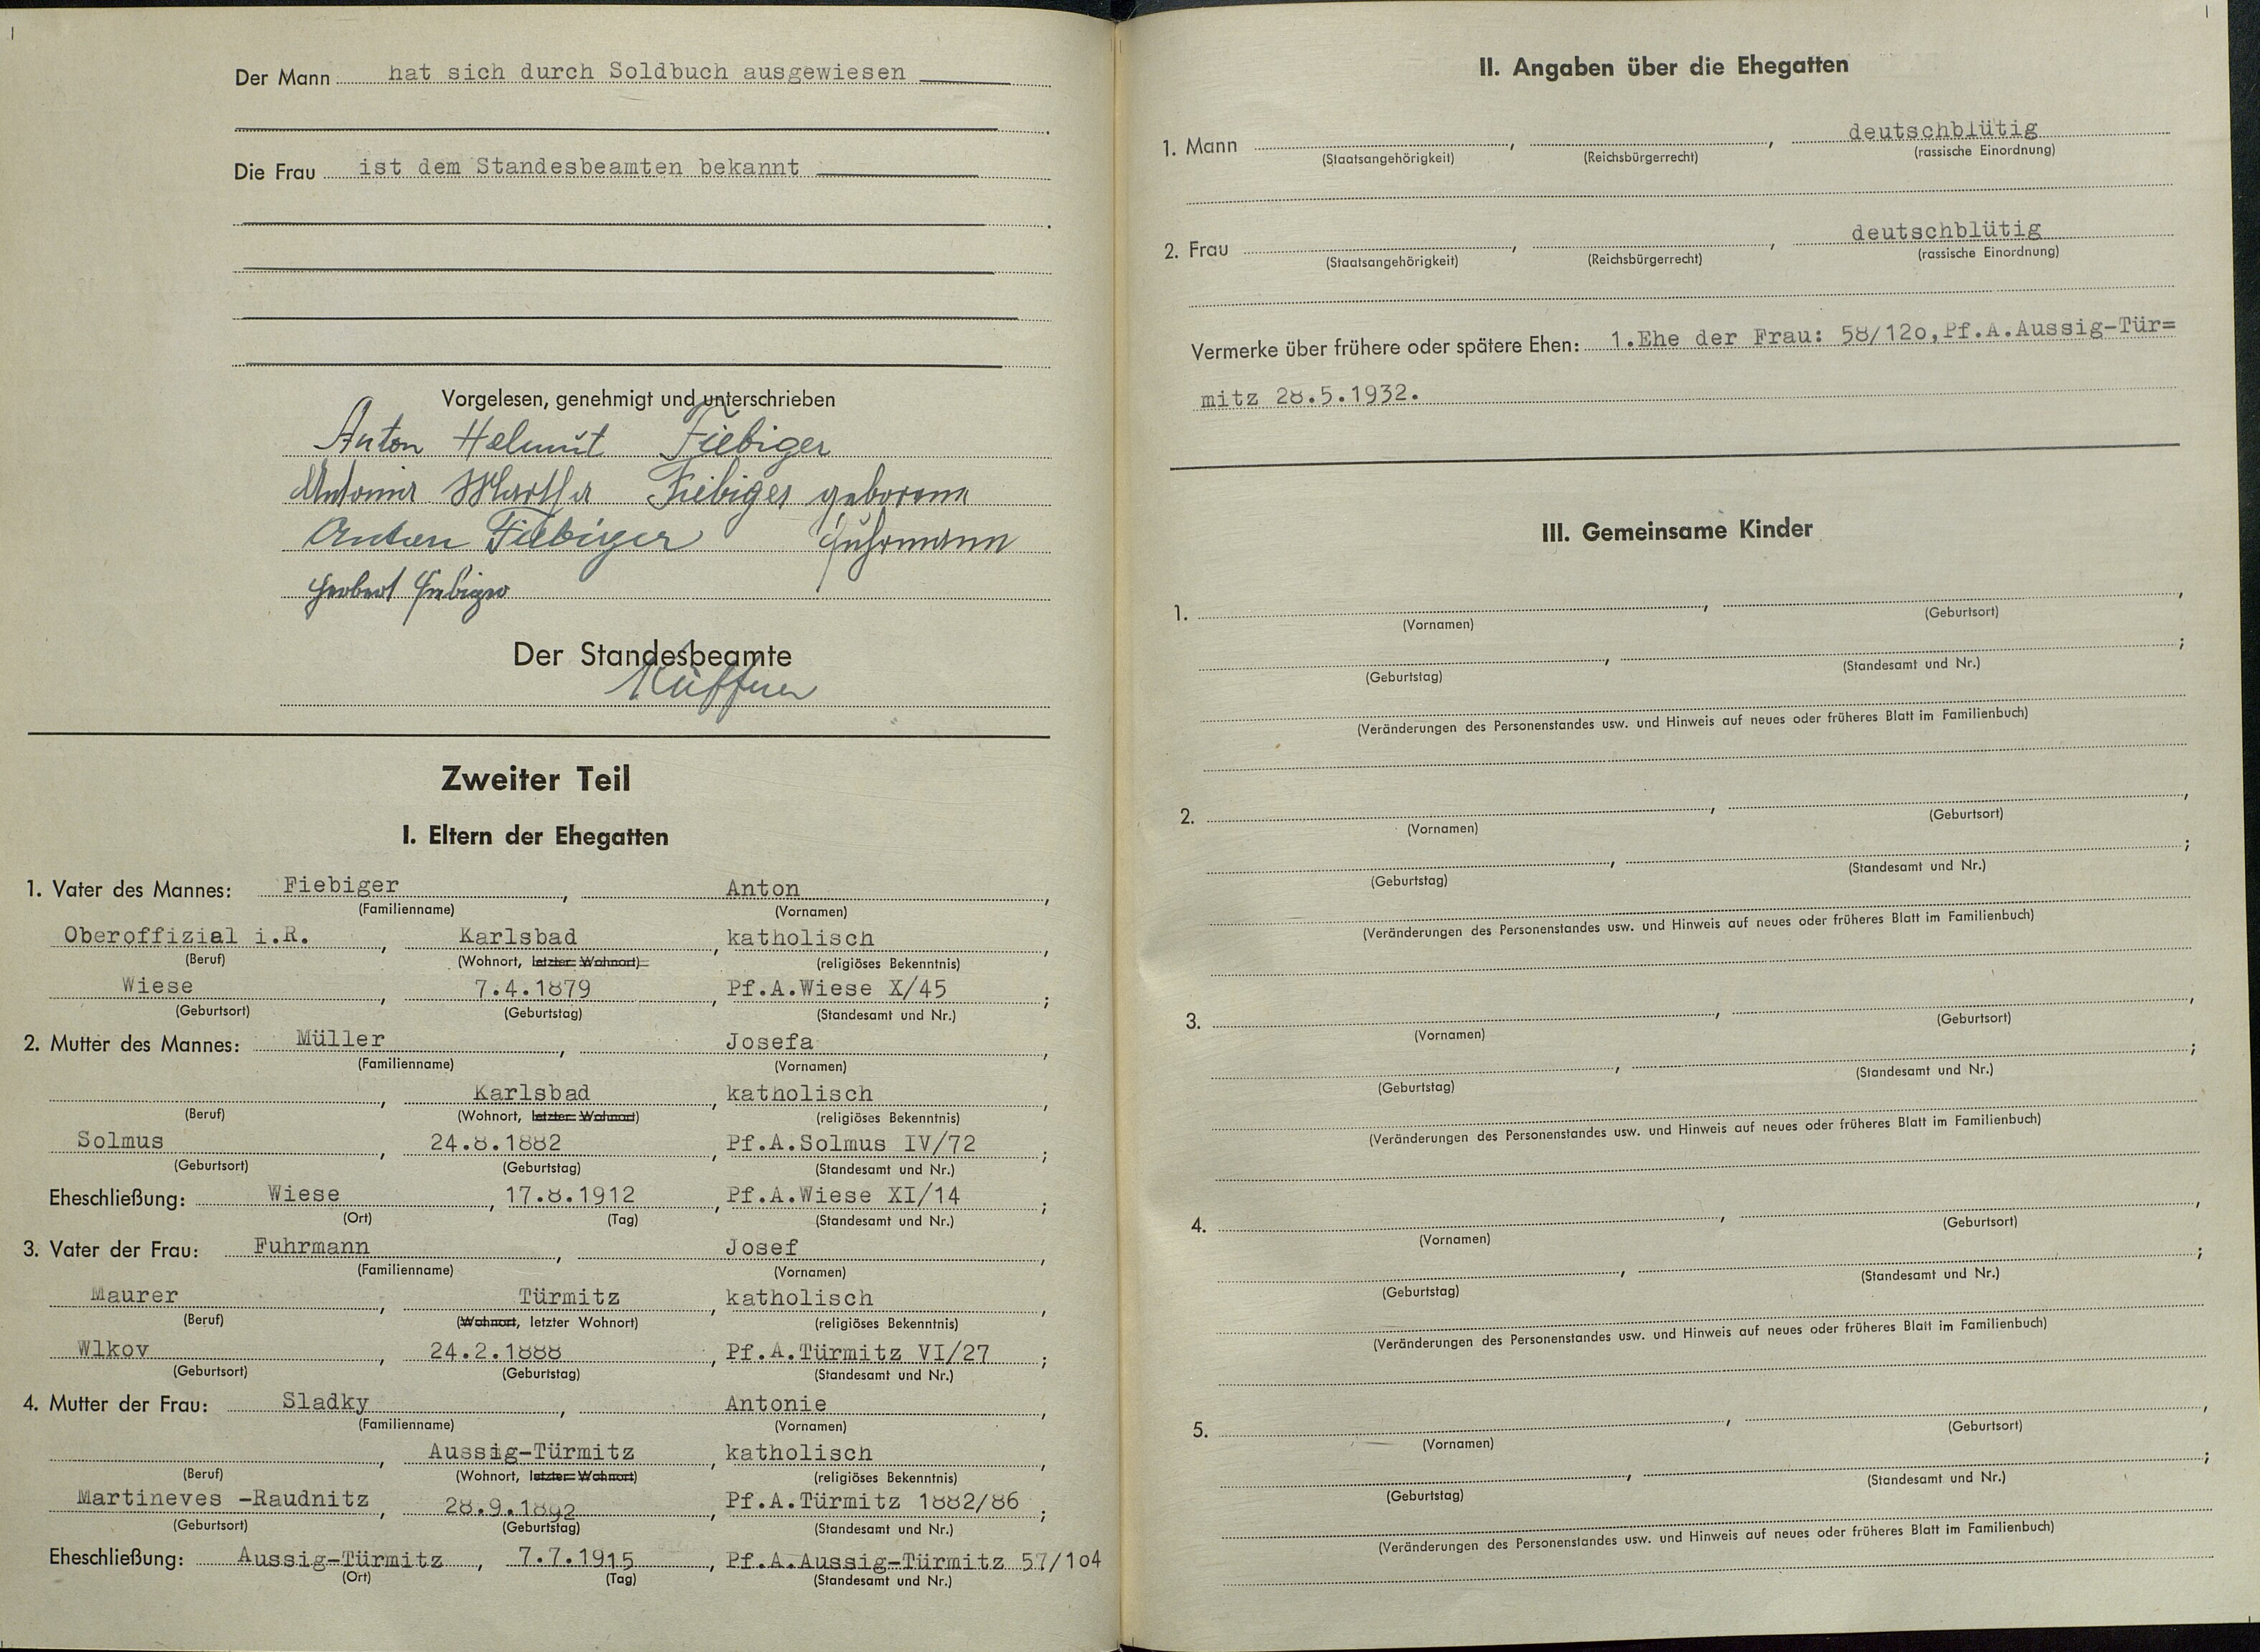 Der Mann hat sich durch Soldbuch ausgewiesen
Die Frau ist dem Standesbeamten bekannt
Vorgelesen, genehmigt und unterschrieben
Anton Helmut Fiebiger
Antonia Martha Fiebiger geborene
Anton Fiebiger Fuhrmann
Herbert Fiebiger
Der Standesbeamte
Küffner
Zweiter Teil
I. Eltern der Ehegatten
1. Vater des Mannes: Fiebiger, Anton,
(Familienname) (Vornamen)
Oberoffizial i.R., Karlsbad, katholisch,
(Beruf) (Wohnort, letzter Wohnort) (religiöses Bekenntnis)
Wiese, 7.4.1879, Pf.A.Wiese X/45;
(Geburtsort) (Geburtstag) (Standesamt und Nr.)
2. Mutter des Mannes: Müller, Josefa,
(Familienname) (Vornamen)
, Karlsbad, katholisch,
(Beruf) (Wohnort, letzter Wohnort) (religiöses Bekenntnis)
Solmus, 24.8.1882, Pf.A.Solmus IV/72;
(Geburtsort) (Geburtstag) (Standesamt und Nr.)
Eheschließung: Wiese, 17.8.1912, Pf.A.Wiese XI/14;
(Ort) (Tag) (Standesamt und Nr.)
3. Vater der Frau: Fuhrmann, Josef,
(Familienname) (Vornamen)
Maurer, Türmitz, katholisch,
(Beruf) (Wohnort, letzter Wohnort) (religiöses Bekenntnis)
Wlkov, 24.2.1888, Pf.A.Türmitz VI/27;
(Geburtsort) (Geburtstag) (Standesamt und Nr.)
4. Mutter der Frau: Sladky, Antonie,
(Familienname) (Vornamen)
, Aussig-Türmitz, katholisch,
(Beruf) (Wohnort, letzter Wohnort) (religiöses Bekenntnis)
Martineves -Raudnitz, 28.9.1892, Pf.A.Türmitz 1882/86;
(Geburtsort) (Geburtstag) (Standesamt und Nr.)
Eheschließung: Aussig-Türmitz, 7.7.1915, Pf.A.Aussig-Türmitz 57/1o4
(Ort) (Tag) (Standesamt und Nr.)
II. Angaben über die Ehegatten
1. Mann , , deutschblütig
(Staatsangehörigkeit) (Reichsbürgerrecht) (rassische Einordnung)
2. Frau , , deutschblütig
(Staatsangehörigkeit) (Reichsbürgerrecht) (rassische Einordnung)
Vermerke über frühere oder spätere Ehen: 1.Ehe der Frau: 58/12o,Pf.A.Aussig-Tür=
mitz 28.5.1932.
III. Gemeinsame Kinder
1. , ,
(Vornamen) (Geburtsort)
, ;
(Geburtstag) (Standesamt und Nr.)
(Veränderungen des Personenstandes usw. und Hinweis auf neues oder früheres Blatt im Familienbuch)
2. , ,
(Vornamen) (Geburtsort)
, ;
(Geburtstag) (Standesamt und Nr.)
(Veränderungen des Personenstandes usw. und Hinweis auf neues oder früheres Blatt im Familienbuch)
3. , ,
(Vornamen) (Geburtsort)
, ;
(Geburtstag) (Standesamt und Nr.)
(Veränderungen des Personenstandes usw. und Hinweis auf neues oder früheres Blatt im Familienbuch)
4. , ,
(Vornamen) (Geburtsort)
, ;
(Geburtstag) (Standesamt und Nr.)
(Veränderungen des Personenstandes usw. und Hinweis auf neues oder früheres Blatt im Familienbuch)
5. , ,
(Vornamen) (Geburtsort)
, ;
(Geburtstag) (Standesamt und Nr.)
(Veränderungen des Personenstandes usw. und Hinweis auf neues oder früheres Blatt im Familienbuch)